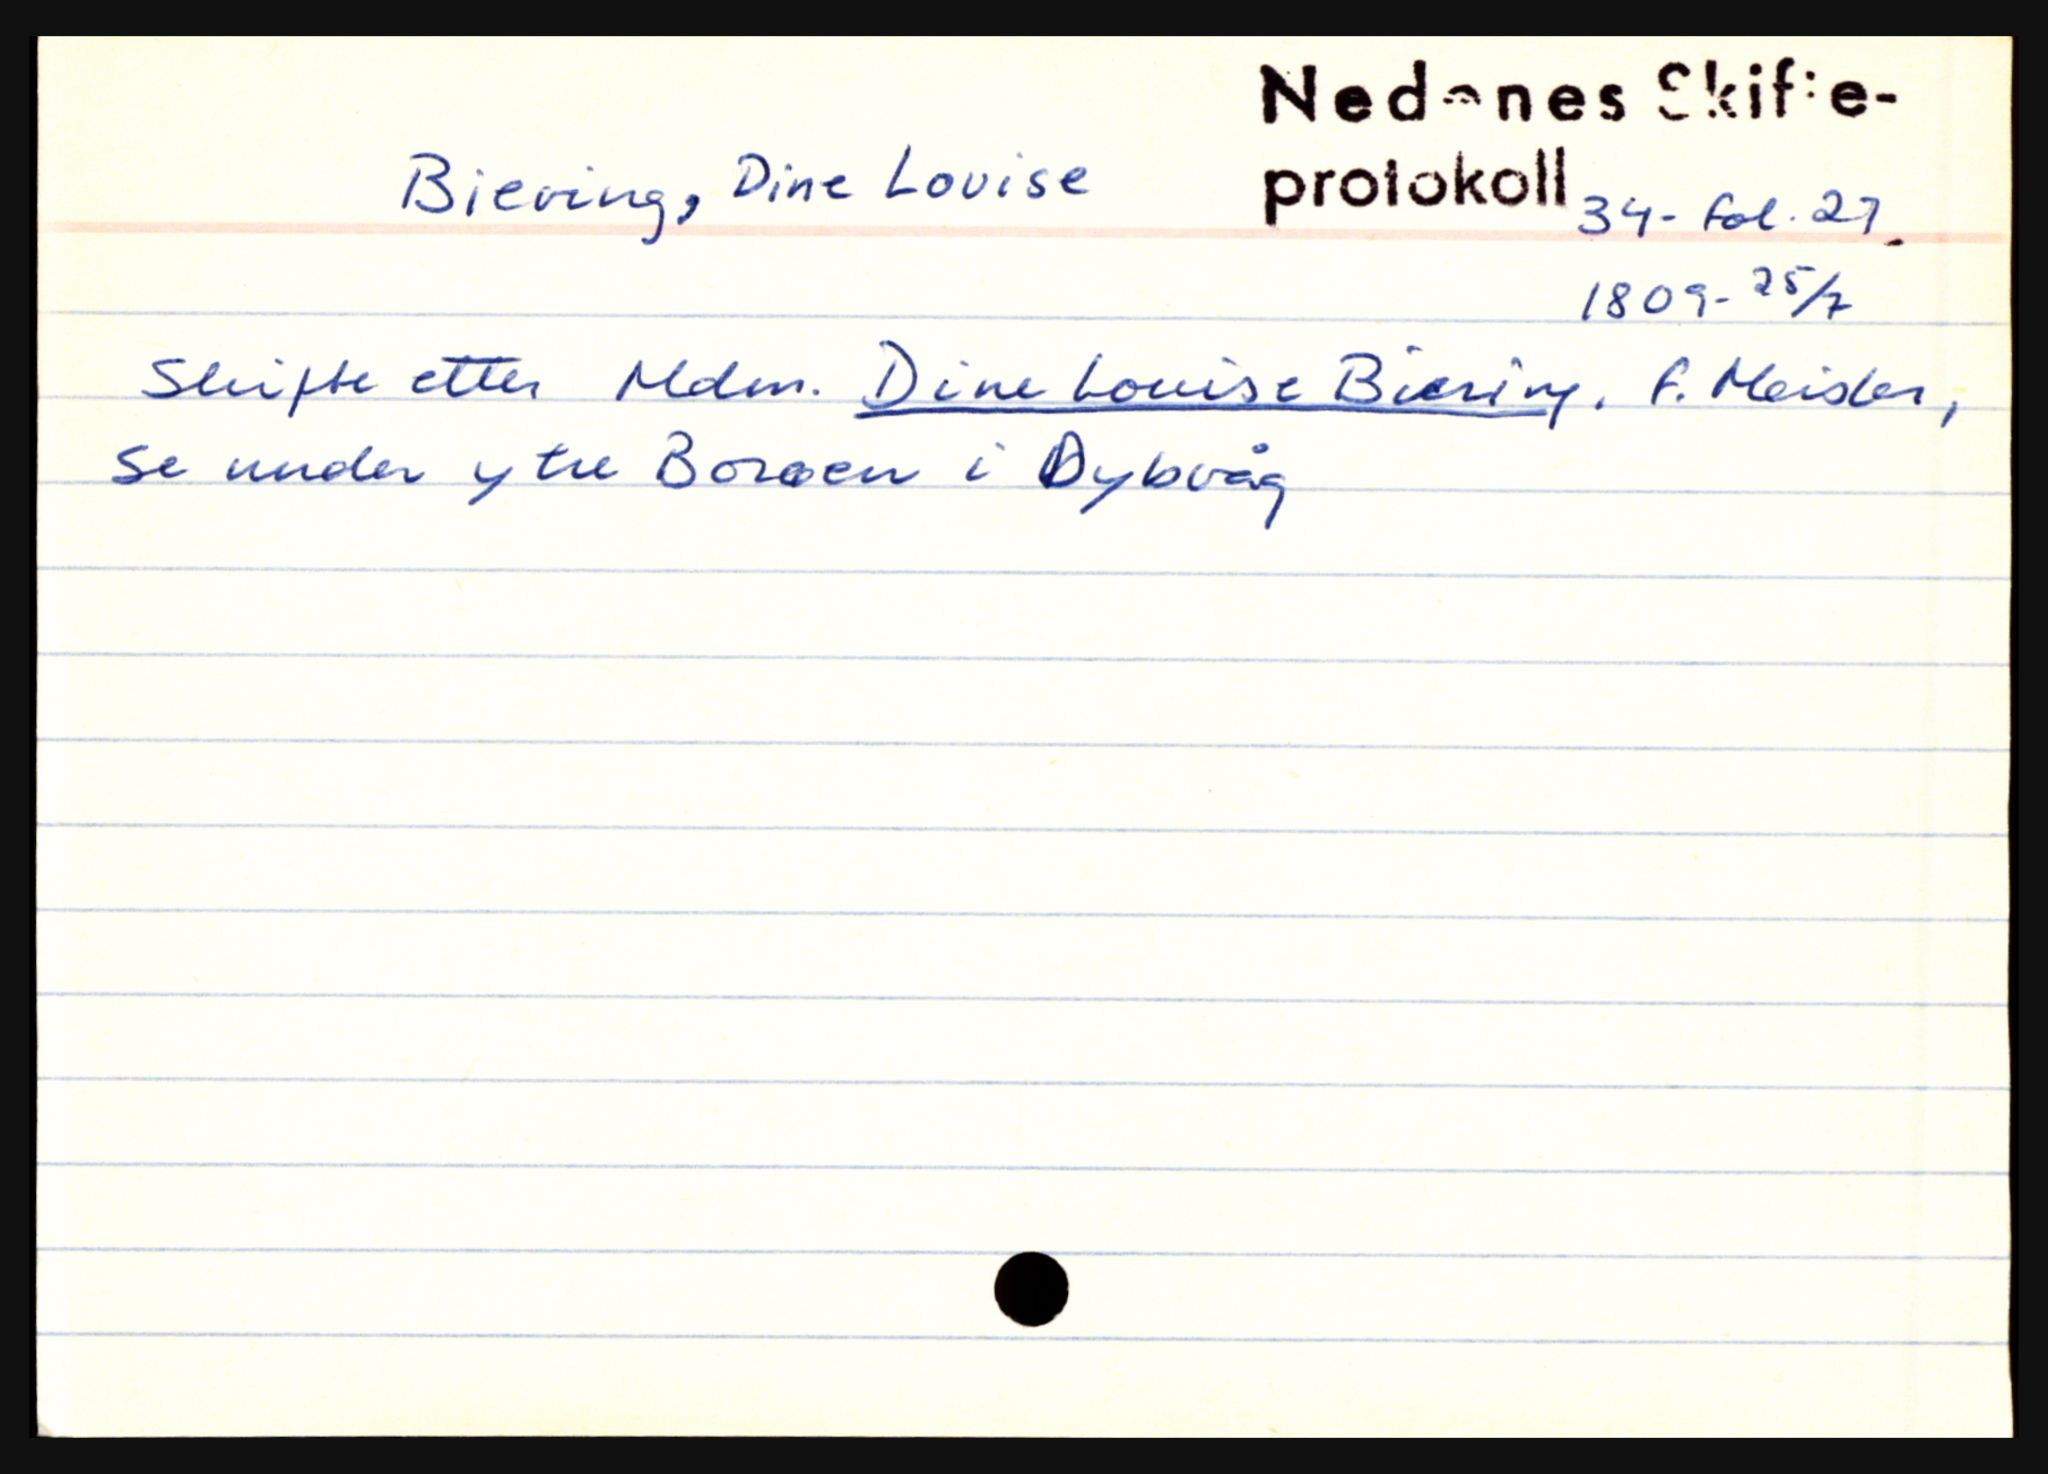 Nedenes Skifte-
protokoll 34- fol. 27
Biering, Dine Louise
1809- 25/7
Skifte etter Mdm. Dine Louise Biering. f. Meisler,
se under ytre Borøen i Dybvåg